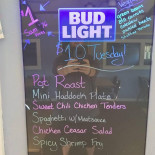 $1
BUD
LIGHT
$10 Tuesday!
Pot Roast
Mini Haddock Plate
Sweet Chili Chicken Tenders
Spaghetti w/ Meatsauce
Chicken Ceasar Salad
Spicy Shrimp Fry